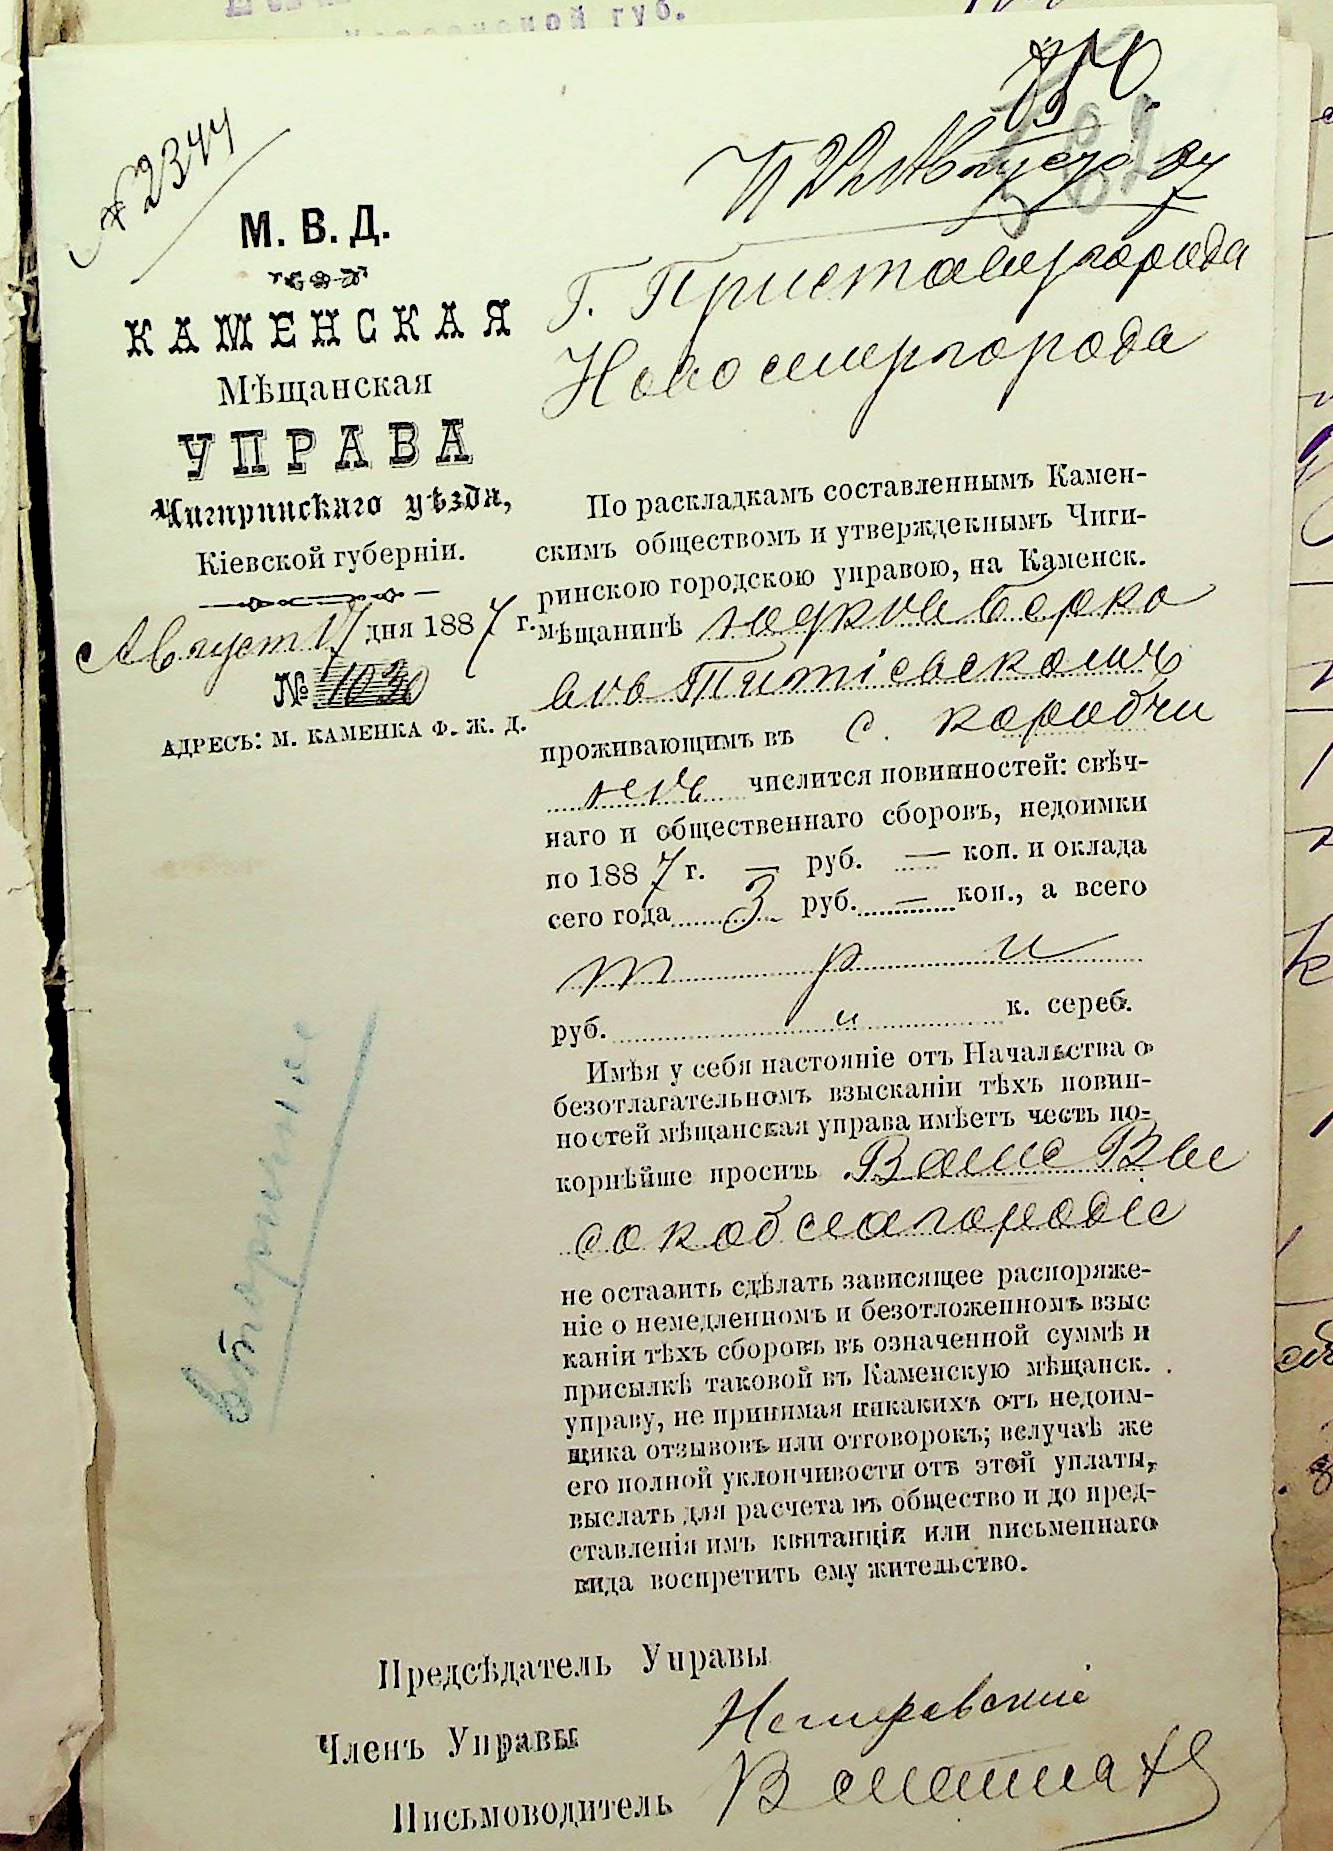 губ.
№ 2344
М. В. Д.
КАМЕНСКАЯ
Мѣщанская
УПРАВА
Чигиринскаго уѣзда,
Кіевской губерніи.
Август 17 дня 1887 г.
№ 1030
АДРЕСЪ: М. КАМЕНКА Ф. Ж. Д.
вторично
Г. Приставу города
Новомиргорода
По раскладкамъ составленнымъ Камен-
скимъ обществомъ и утвержденнымъ Чиги-
ринскою городскою управою, на Каменск.
мѣщанинѣ Берко
проживающимъ въ с. Коробчи
нѣ числится повинностей: свѣч-
наго и общественнаго сборовъ, недоимки
по 1887 г. — руб. — коп. и оклада
сего года 3 руб. — коп., а всего
три
руб. и к. сереб.
Имѣя у себя настояніе отъ Начальства о
безотлагательномъ взысканіи тѣхъ повин-
ностей мѣщанская управа имѣетъ честь по-
корнѣйше просить Ваше Вы
сокоблагородіе
не остаавить сдѣлать зависящее распоряже-
ніе о немедленномъ и безотложенномъ взыс
каніи тѣхъ сборовъ въ означенной суммѣ и
присылкѣ таковой въ Каменскую мѣщанск.
управу, не принимая никакихъ отъ недоим-
щика отзывовъ или отговорокъ; вслучаѣ же
его полной уклончивости отъ этой уплаты,
выслать для расчета въ общество и до пред-
ставленія имъ квитанцій или письменнаго
вида воспретить ему жительство.
Предсѣдатель Управы
Членъ Управы Немировскій
Письмоводитель